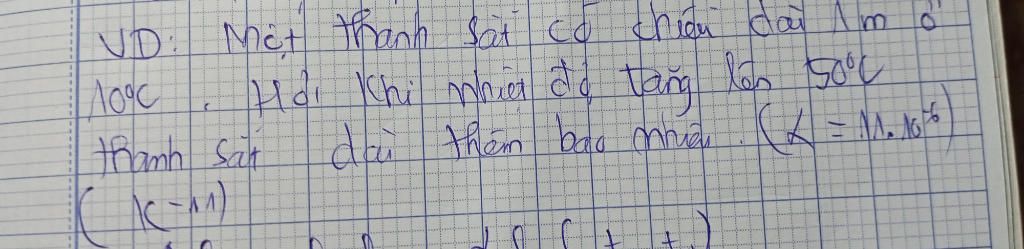 VD: Một thanh sắt có chiều dài 1m ở
10°C. Hỏi khi nhiệt độ tăng lên 50°C
thanh sắt dài thêm bao nhiêu. (α = 11.10⁻⁶)
(K⁻¹)